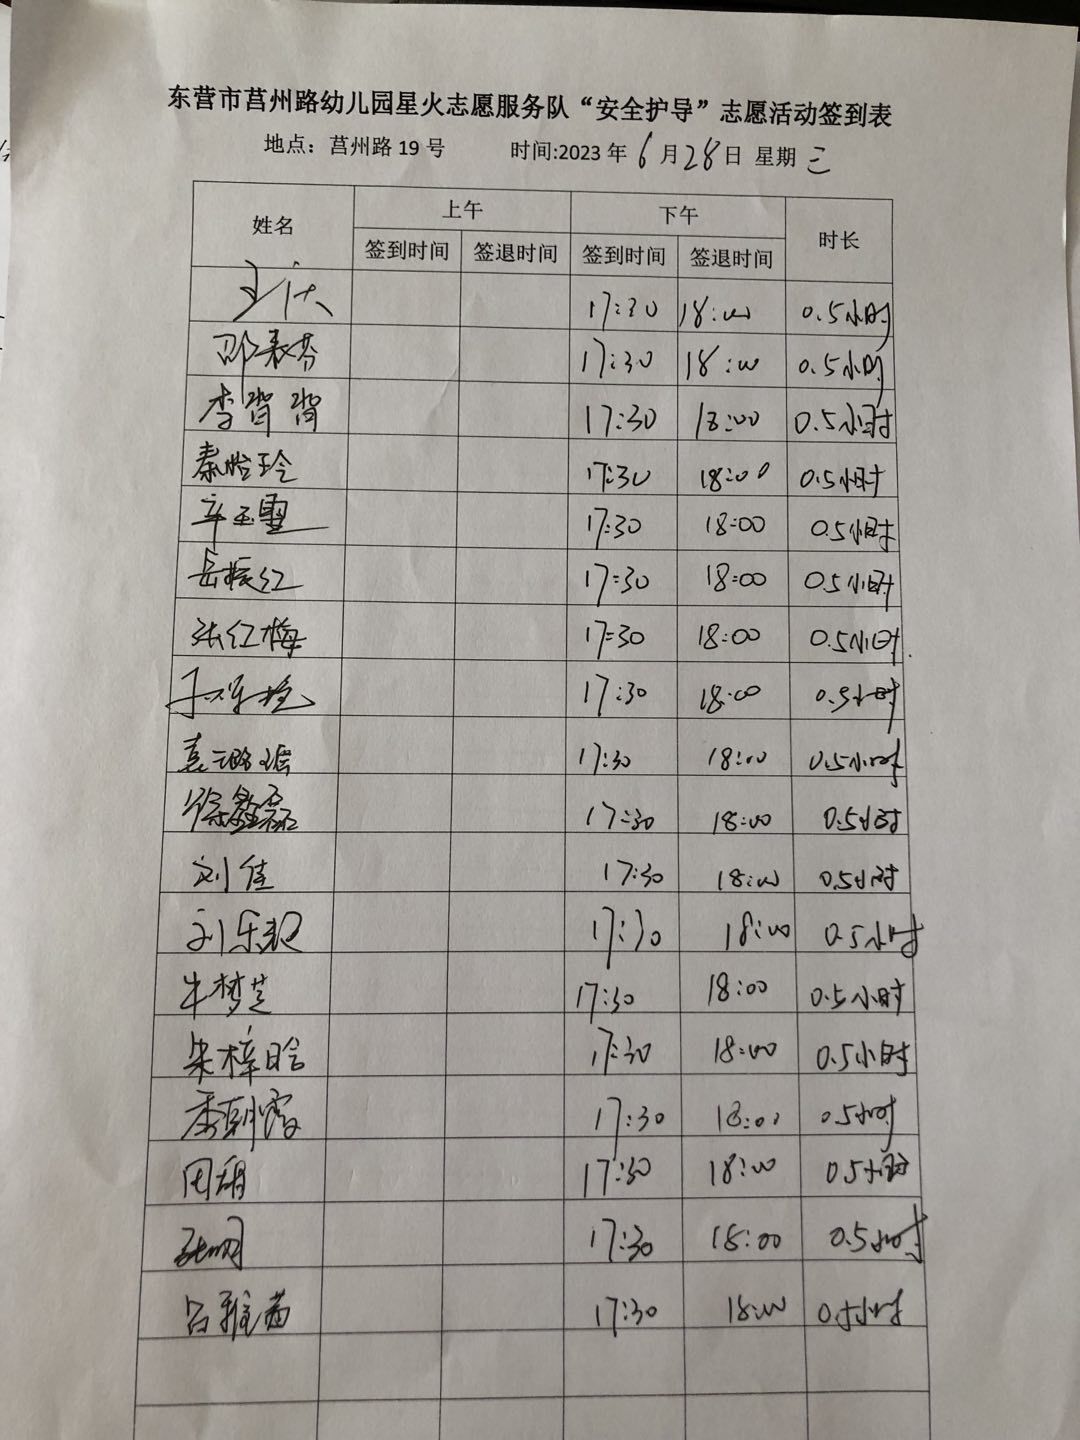 东营市莒州路幼儿园星火志愿服务队“安全护导”志愿活动签到表
地点：莒州路 19 号 时间:2023 年 6 月 28 日 星期 三
姓名 上午 下午 时长
签到时间 签退时间 签到时间 签退时间
17:30 18:00 0.5小时
邵 17:30 18:00 0.5小时
李 17:30 18:00 0.5小时
秦怡玲 17:30 18:00 0.5小时
辛玉 17:30 18:00 0.5小时
岳振红 17:30 18:00 0.5小时
张红梅 17:30 18:00 0.5小时
17:30 18:00 0.5小时
袁璐瑶 17:30 18:00 0.5小时
徐鑫磊 17:30 18:00 0.5小时
刘佳 17:30 18:00 0.5小时
刘乐 17:30 18:00 0.5小时
牛梦芝 17:30 18:00 0.5小时
朱梓晗 17:30 18:00 0.5小时
朝霞 17:30 18:00 0.5小时
周 17:30 18:00 0.5小时
17:30 18:00 0.5小时
吕雅茜 17:30 18:00 0.5小时